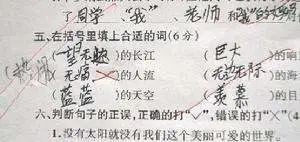 了同学、"我"、老师和我的大学同
五、在括号里填上合适的词(6分)
(一望无际)的长江 (巨大)的响
(热闹) (无穷)的人流 (无边无际)的海
(蓝蓝)的天空 (羡慕)的目
六、判断句子的正误,正确的打"✓",错误的打"×"(4
1.没有太阳就没有我们这个美丽可爱的世界。